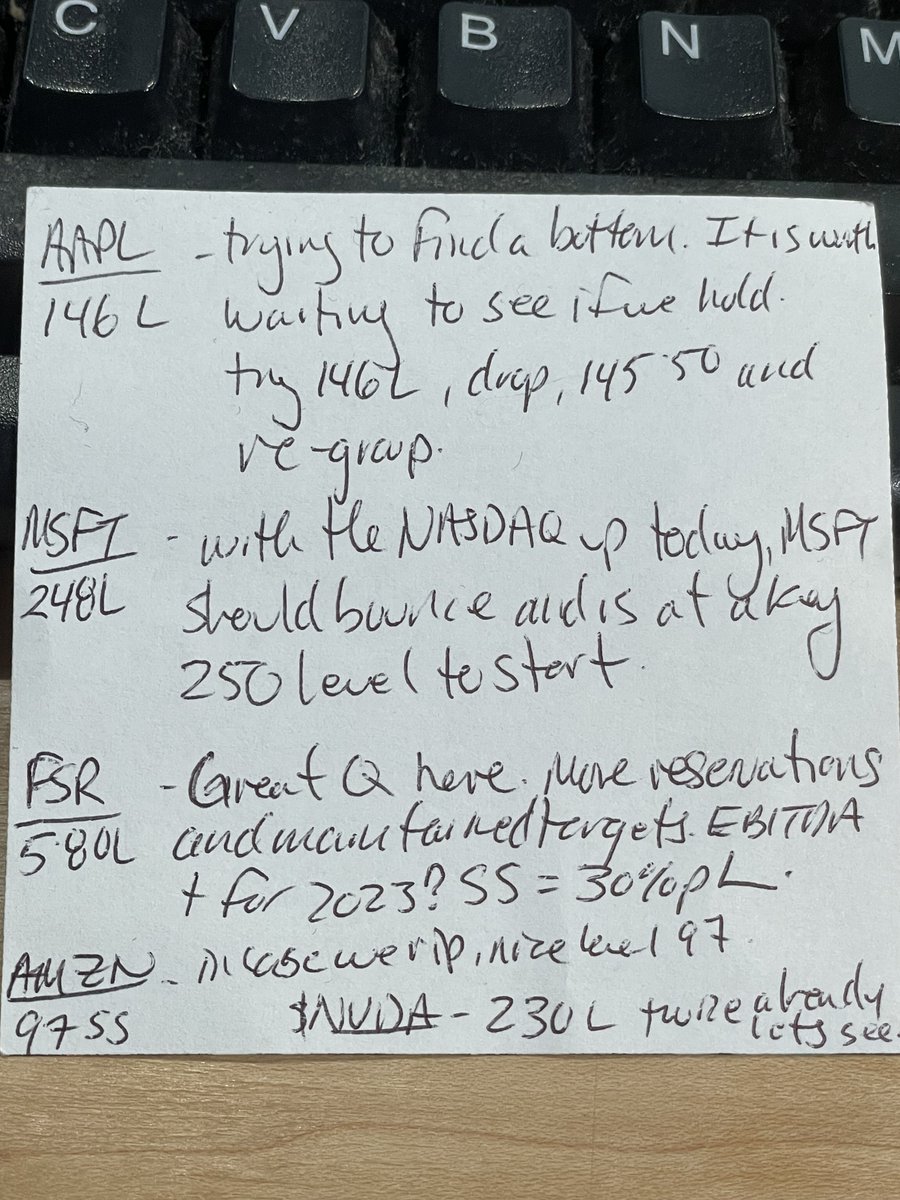 C V B N M
AAPL - trying to find a bottom. It is worth
146L waiting to see if we hold.
try 146L, drop, 145.50 and
re-group.
MSFT - with the NASDAQ up today, MSFT
248L should bounce and is at a key
250 level to start.
FSR - Great Q here. More reservations
5.80L and maintained targets. EBITDA
+ for 2023? SS = 30% pL.
AMZN - in case we rip, nice level 97.
97SS $NVDA - 230L twice already
lets see.